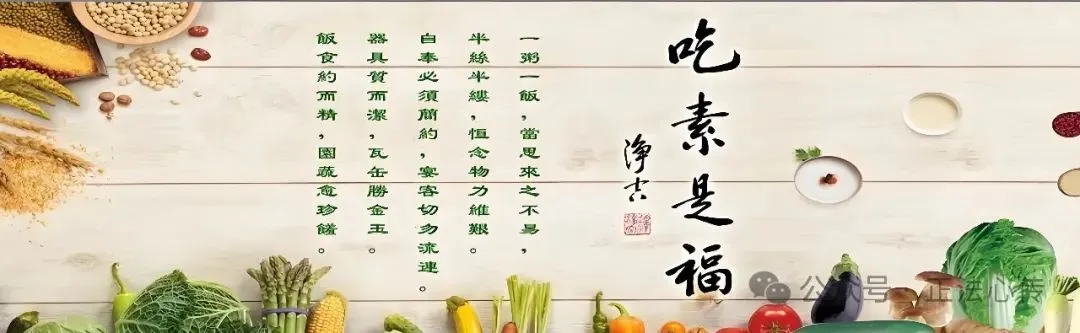 吃素是福
淨空
一粥一飯,當思來之不易,
半絲半縷,恒念物力維艱。
自奉必須簡約,宴客切勿流連。
器具質而潔,瓦缶勝金玉。
飯食約而精,園蔬愈珍饈。
公众号 正法心转